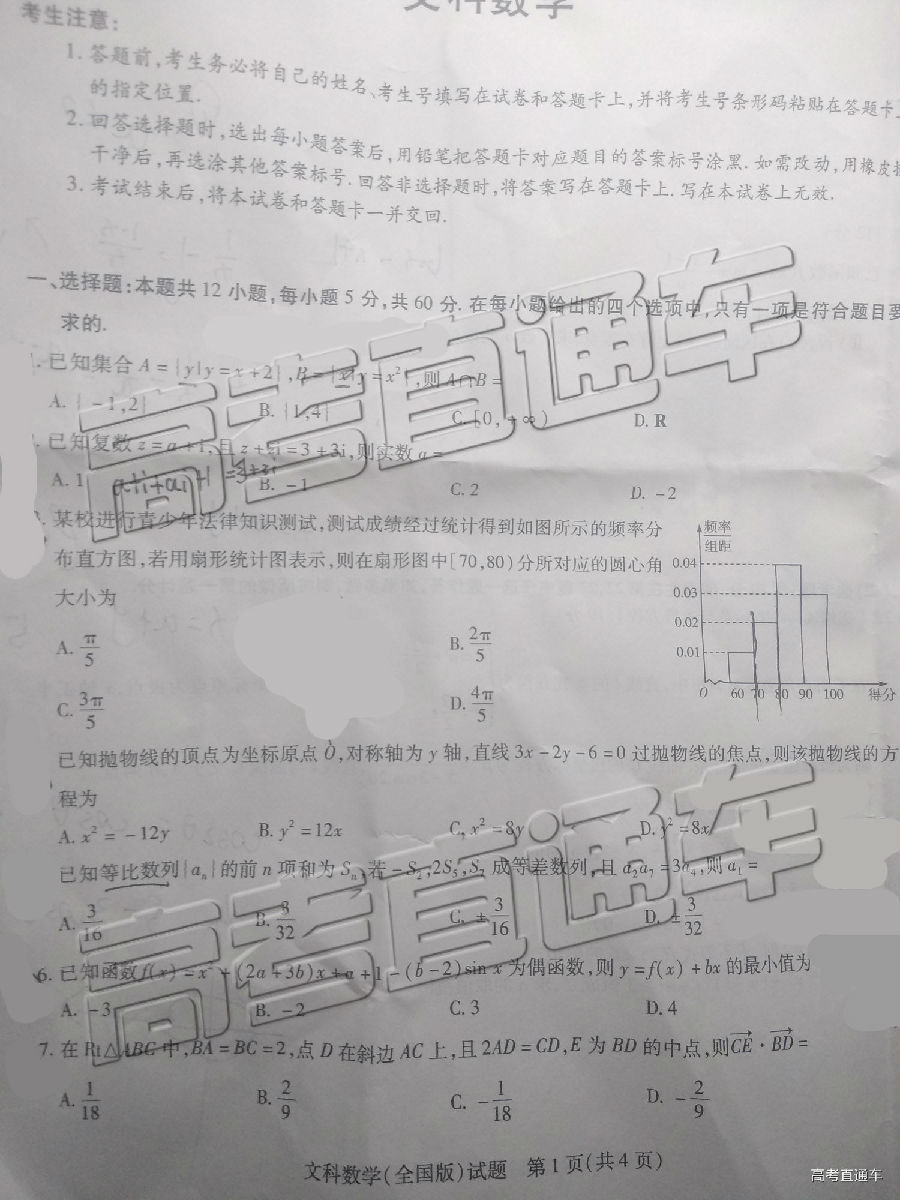 文科数学
考生注意:
1. 答题前,考生务必将自己的姓名、考生号填写在试卷和答题卡上,并将考生号条形码粘贴在答题卡上
的指定位置.
2. 回答选择题时,选出每小题答案后,用铅笔把答题卡对应题目的答案标号涂黑.如需改动,用橡皮擦
干净后,再选涂其他答案标号.回答非选择题时,将答案写在答题卡上.写在本试卷上无效.
3. 考试结束后,将本试卷和答题卡一并交回.
一、选择题:本题共 12 小题,每小题 5 分,共 60 分.在每小题给出的四个选项中,只有一项是符合题目要
求的.
.已知集合 A={y|y=x+2},B={x|y=x²},则 A∩B=
A. {-1,2} B. {1,4} C. [0,+∞) D. R
.已知复数 z=a+i,且 z+zi=3+3i,则实数 a=
A. 1 a+i+ai+1=3+3i B. -1 C. 2 D. -2
. 某校进行青少年法律知识测试,测试成绩经过统计得到如图所示的频率分
布直方图,若用扇形统计图表示,则在扇形图中[70,80)分所对应的圆心角
大小为
A. π/5 B. 2π/5
C. 3π/5 D. 4π/5
频率
组距
0.04
0.03
0.02
0.01
O 60 70 80 90 100 得分
已知抛物线的顶点为坐标原点 O,对称轴为 y 轴,直线 3x-2y-6=0 过抛物线的焦点,则该抛物线的方
程为
A. x²=-12y B. y²=12x C. x²=8y D. y²=8x
已知等比数列{aₙ}的前 n 项和为 Sₙ,若 -S₂,2S₅,S₂ 成等差数列,且 a₂a₇=3a₄,则 a₁=
A. 3/16 B. 3/32 C. ±3/16 D. ±3/32
6. 已知函数 f(x)=x²+(2a+3b)x+a+1-(b-2)sin x 为偶函数,则 y=f(x)+bx 的最小值为
A. -3 B. -2 C. 3 D. 4
7. 在 Rt△ABC 中,BA=BC=2,点 D 在斜边 AC 上,且 2AD=CD,E 为 BD 的中点,则 CE·BD=
A. 1/18 B. 2/9 C. -1/18 D. -2/9
文科数学(全国版)试题 第 1 页(共 4 页)
高考直通车
高考直通车
高考直通车